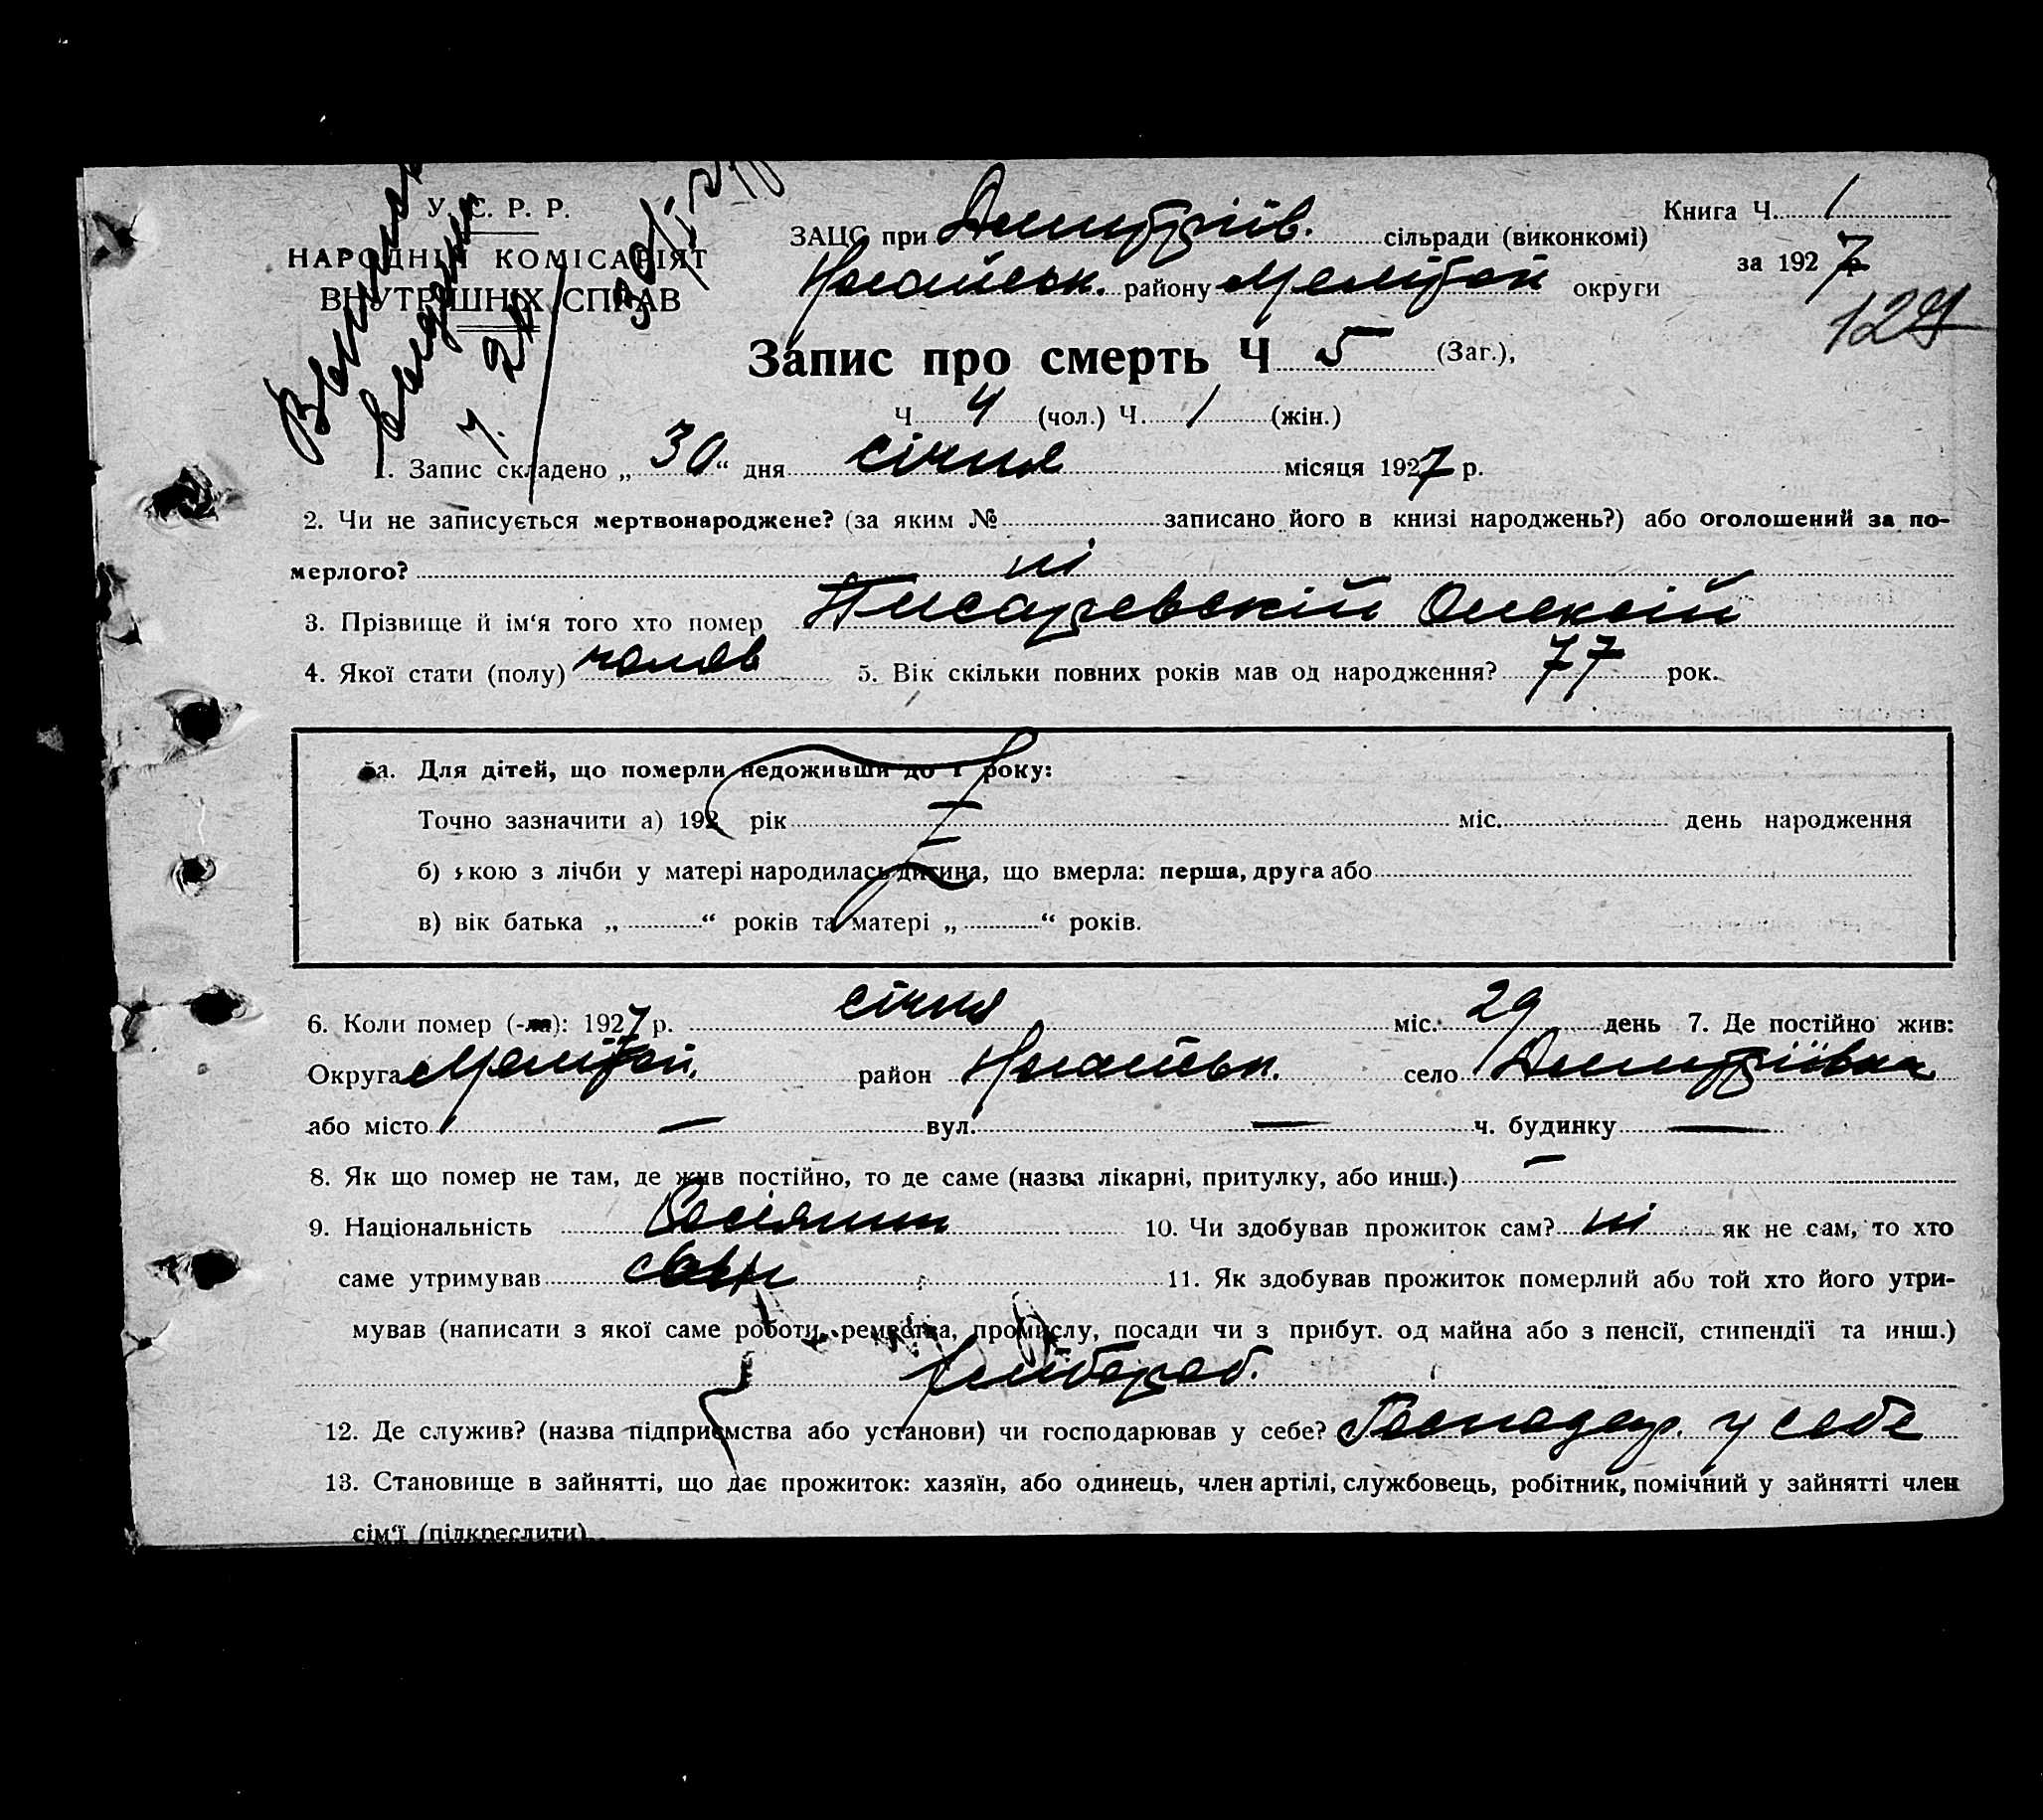 У. С. Р. Р.
НАРОДНІЙ КОМІСАРІЯТ
ВНУТРІШНІХ СПРАВ
ЗАЦС при Дмитріїв. сільради (виконкомі)
Ногайськ. району Меліτοп. округи
Книга Ч. 1
за 1927 р.
124
Запис про смерть Ч 5 (Заг.),
Ч 4 (чол.) Ч. 1 (жін.)
1. Запис складено „ 30 “ дня січня місяця 1927 р.
2. Чи не записується мертвонароджене? (за яким № записано його в книзі народжень?) або оголошений за по-
мерлого? ні
3. Прізвище й ім‘я того хто помер Писаревскій Олексій
4. Якої стати (полу) чолов 5. Вік скільки повних років мав од народження? 77 рок.
5а. Для дітей, що померли недоживши до 1 року:
Точно зазначити а) 192 рік міс. день народження
б) якою з лічби у матері народилась дитина, що вмерла: перша, друга або
в) вік батька „ “ років та матері „ “ років.
6. Коли помер (-ла): 1927 р. січня міс. 29 день 7. Де постійно жив:
Округа Меліτοп. район Ногайськ. село Дмитріївка
або місто — вул. — ч. будинку —
8. Як що помер не там, де жив постійно, то де саме (назва лікарні, притулку, або инш.) —
9. Національність Росіянин 10. Чи здобував прожиток сам? ні як не сам, то хто
саме утримував син 11. Як здобував прожиток померлий або той хто його утри-
мував (написати з якої саме роботи, ремества, промислу, посади чи з прибут. од майна або з пенсії, стипендії та инш.)
хлібороб.
12. Де служив? (назва підприємства або установи) чи господарював у себе? Господар. у себе
13. Становище в зайнятті, що дає прожиток: хазяїн, або одинець, член артілі, службовець, робітник, помічний у зайнятті член
сім‘ї (підкреслити)